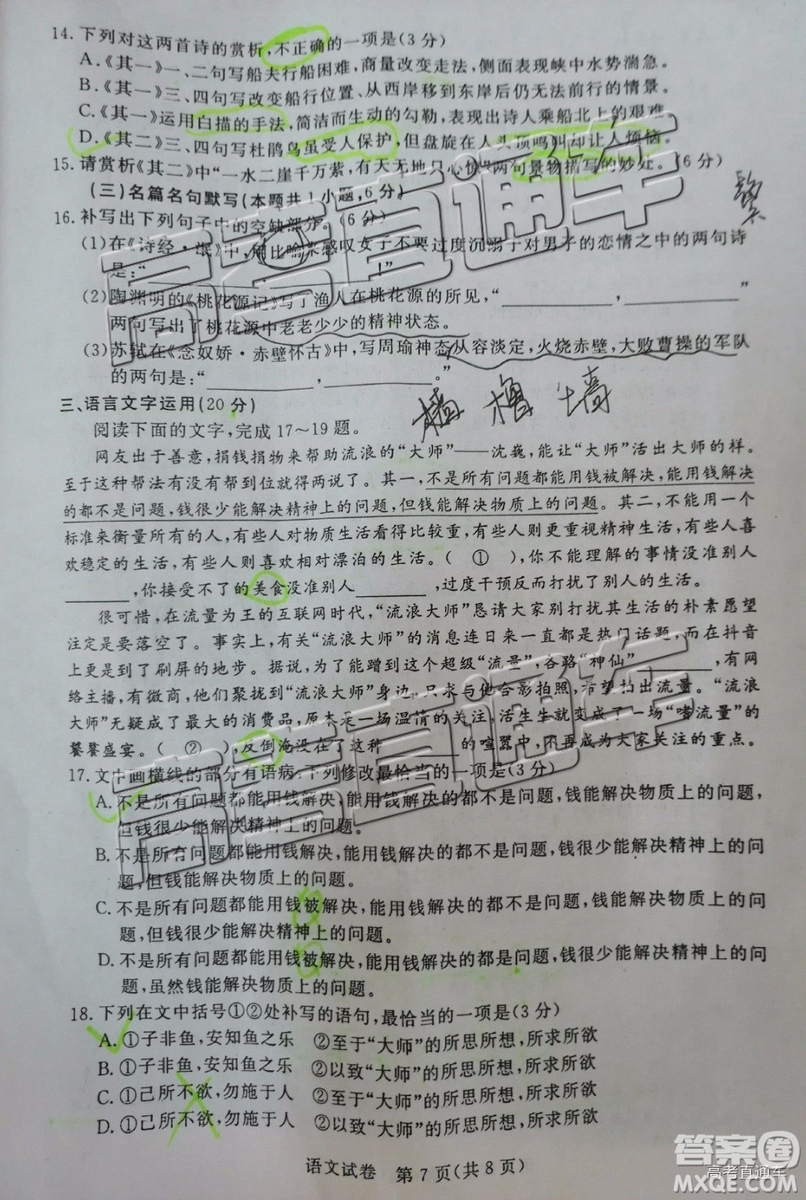 14. 下列对这两首诗的赏析,不正确的一项是(3 分)
A.《其一》一、二句写船夫行船困难,商量改变走法,侧面表现峡中水势湍急。
B.《其一》三、四句写改变船行位置、从西岸移到东岸后仍无法前行的情景。
C.《其一》运用白描的手法,简洁而生动的勾勒,表现出诗人乘船北上的艰难。
D.《其二》三、四句写杜鹃鸟虽受人保护,但盘旋在人头顶鸣叫却让人烦恼。
15. 请赏析《其二》中“一水二崖千万萦,有天无地只心惊”两句景物描写的妙处。(6 分)
(三)名篇名句默写(本题共 1 小题,6 分)
16. 补写出下列句子中的空缺部分。(6 分)
(1)在《诗经·氓》中,用比喻来感叹女子不要过度沉溺于对男子的恋情之中的两句诗
是:“ ! ”
(2)陶渊明的《桃花源记》写了渔人在桃花源的所见,“ , ”
两句写出了桃花源中老老少少的精神状态。
(3)苏轼在《念奴娇·赤壁怀古》中,写周瑜神态从容淡定,火烧赤壁,大败曹操的军队
的两句是:“ , ”
樯 橹 墙
三、语言文字运用(20 分)
阅读下面的文字,完成 17~19 题。
网友出于善意,捐钱捐物来帮助流浪的“大师”——沈巍,能让“大师”活出大师的样。
至于这种帮法有没有帮到位就得两说了。其一,不是所有问题都能用钱被解决,能用钱解决
的都不是问题,钱很少能解决精神上的问题,但钱能解决物质上的问题。其二,不能用一个
标准来衡量所有的人,有些人对物质生活看得比较重,有些人则更重视精神生活,有些人喜
欢稳定的生活,有些人则喜欢相对漂泊的生活。( ① ),你不能理解的事情没准别人
,你接受不了的美食没准别人 ,过度干预反而打扰了别人的生活。
很可惜,在流量为王的互联网时代,“流浪大师”恳请大家别打扰其生活的朴素愿望
注定是要落空了。事实上,有关“流浪大师”的消息连日来一直都是热门话题,而在抖音
上更是到了刷屏的地步。据说,为了能蹭到这个超级“流量”,各路“神仙” ,有网
络主播,有微商,他们聚拢到“流浪大师”身边,只求与他合影拍照,希望拍出流量。“流浪
大师”无疑成了最大的消费品,原本是一场温情的关注,活生生就变成了一场“嗜流量”的
饕餮盛宴。( ② ),反倒淹没在了这种 的喧嚣中,不再成为大家关注的重点。
17. 文中画横线的部分有语病,下列修改最恰当的一项是(3 分)
A. 不是所有问题都能用钱解决,能用钱解决的都不是问题,钱能解决物质上的问题,
但钱很少能解决精神上的问题。
B. 不是所有问题都能用钱解决,能用钱解决的都不是问题,钱很少能解决精神上的问题,
但钱能解决物质上的问题。
C. 不是所有问题都能用钱被解决,能用钱解决的都不是问题,钱能解决物质上的问
题,但钱很少能解决精神上的问题。
D. 不是所有问题都能用钱被解决,能用钱解决的都是问题,钱很少能解决精神上的问
题,虽然钱能解决物质上的问题。
18. 下列在文中括号①②处补写的语句,最恰当的一项是(3 分)
A. ①子非鱼,安知鱼之乐 ②至于“大师”的所思所想,所求所欲
B. ①子非鱼,安知鱼之乐 ②以致“大师”的所思所想,所求所欲
C. ①己所不欲,勿施于人 ②至于“大师”的所思所想,所求所欲
D. ①己所不欲,勿施于人 ②以致“大师”的所思所想,所求所欲
语文试卷 第 7 页(共 8 页)
高考直通车
高考直通车
答案圈
高考直通车
MXQE.COM